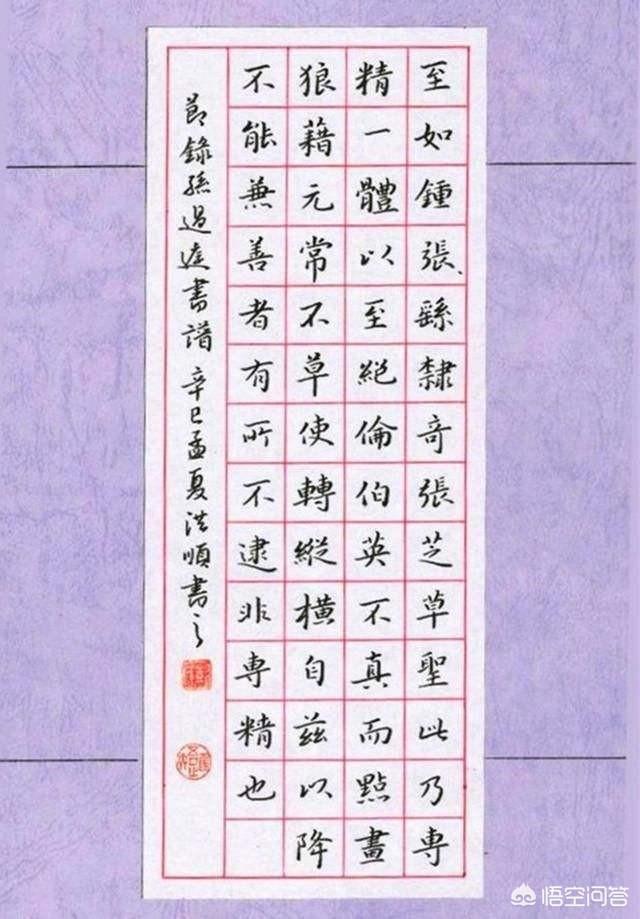 至如鍾張繇隸奇張芝草聖此乃專
精一體以至絕倫伯英不真而點畫
狼藉元常不草使轉縱橫自茲以降
不能兼善者有所不逮非專精也
節錄孫過庭書譜 辛巳孟夏洪順書之
悟空问答